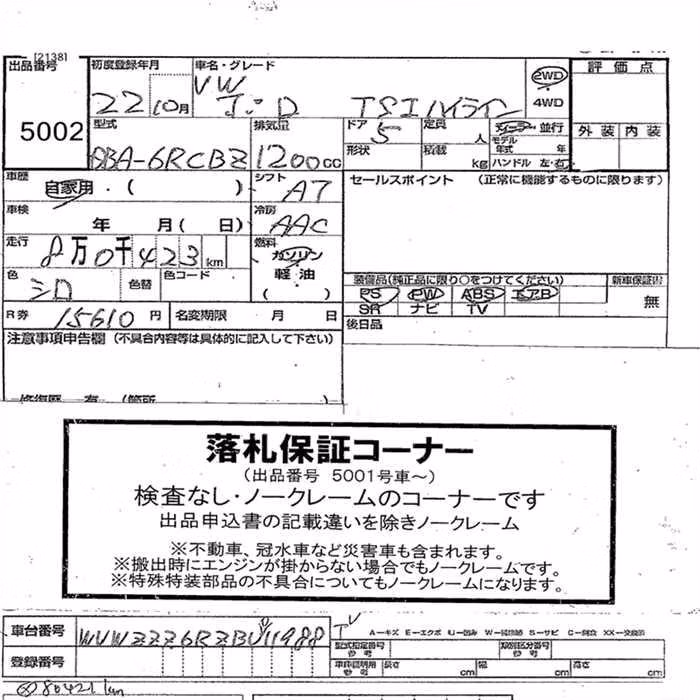 [2138]
出品番号 5002
初度登録年月 22 10月
車名・グレード VW ポロ TSIハイライン
2WD 4WD
評価点
外装 内装
型式 DBA-6RCBZ
排気量 1200cc
ドア 5
形状
定員 人
積載 kg
ディーラー 並行
モデル年式 年
ハンドル 左・右
車歴 自家用・( )
シフト AT
セールスポイント (正常に機能するものに限ります)
車検 年 月( 日)
冷房 AAC
走行 8万0千423km
燃料 ガソリン
軽油
( )
色 シロ 色替 色コード
装備品(純正品に限り○をつけてください) 新車保証書
PS PW ABS エアB 無
SR ナビ TV
R券 15610円 名変期限 月 日
後日品
注意事項申告欄 (不具合内容等は具体的に記入して下さい)
修復歴 有 (箇所
落札保証コーナー
(出品番号 5001号車～)
検査なし・ノークレームのコーナーです
出品申込書の記載違いを除きノークレーム
※不動車、冠水車など災害車も含まれます。
※搬出時にエンジンが掛からない場合でもノークレームです。
※特殊特装部品の不具合についてもノークレームになります。
車台番号 WVWZZZ6RZBU11988
A-キズ E-エクボ U-凹み S-サビ C-腐食 XX-交換済
登録番号
型式指定番号 参考 類別区分番号 参考
車庫証明用 参考 長さ cm 幅 cm 高さ cm
80421km